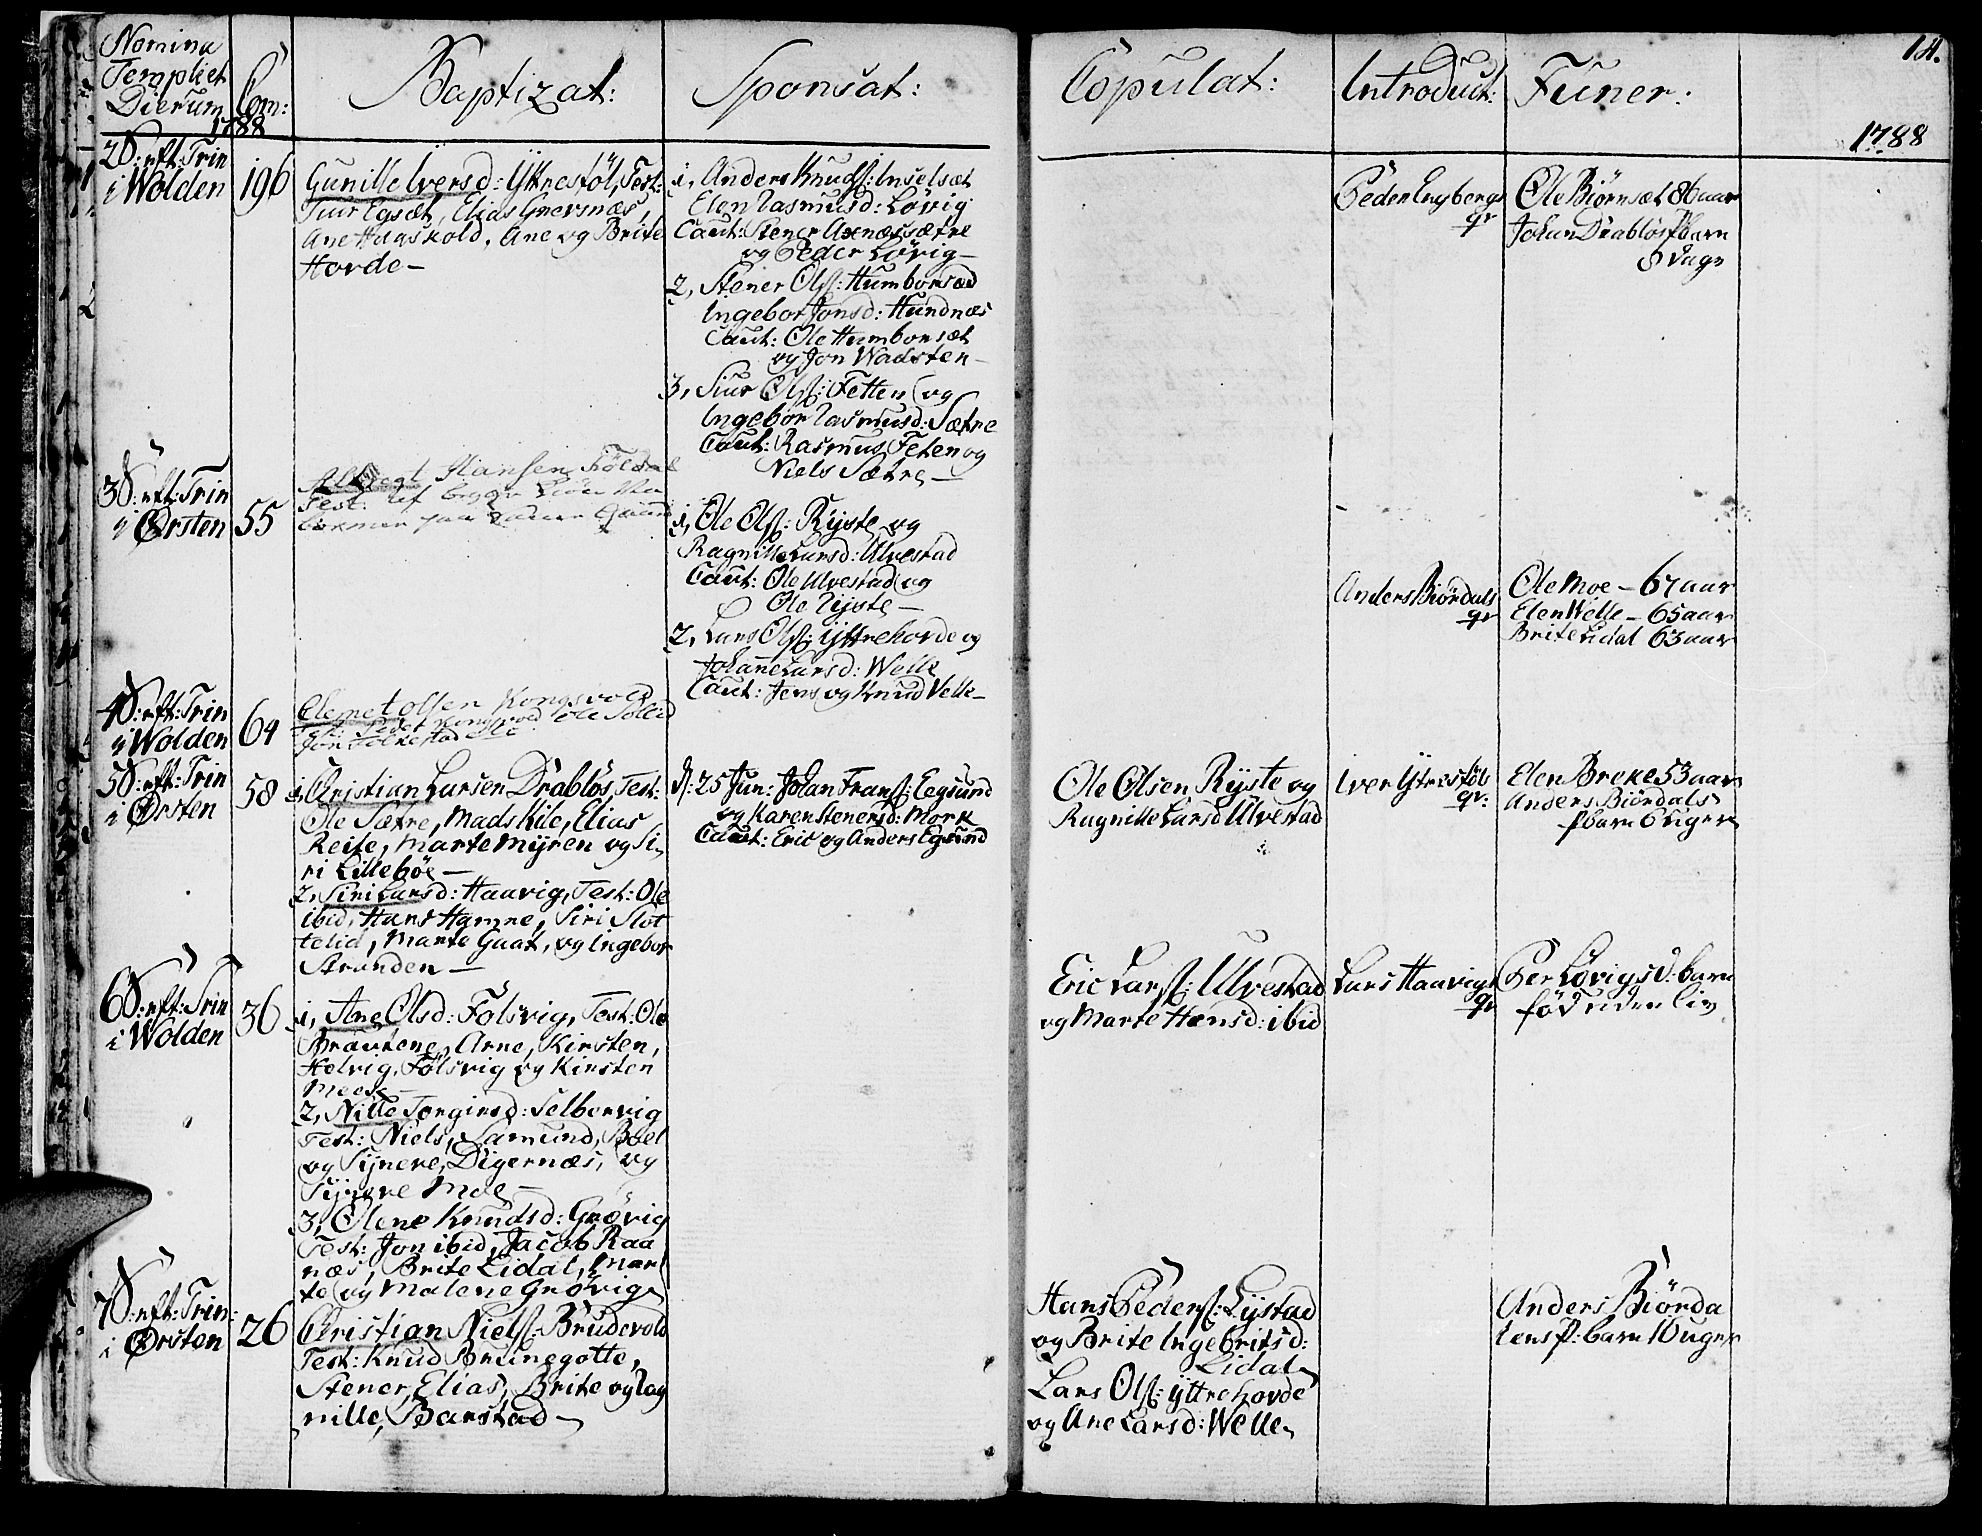 Nomina
Templiet
Dierum
1788
Com:
Baptizat:
Sponsat:
Copulat:
Introduct:
Funer:
14.
1788
2 S: eft: Trin
i Wolden
196
Gunille Iversd: Ytrestøl, Test:
Siur Egsæt, Elias
Ane Haaskold, Ane og Brite
Horde –
1, Anders Knuds: Inselsæt
Elen Rasmusd: Løvig
Caut: Stener Axnæssætre
og Peder Løvig –
2, Stener Ols: Humborsæd
Ingebor Jonsd: Hundnæs
Caut: Ole Humborsæt
og Jon Wadsten –
3, Siur Ols: Fetten og
Ingebor Rasmusd: Sætre
Caut: Rasmus Feten og
Niels Sætre –
Peder Engbergs
qv
Ole Biørnsæt 86 aar
Johan Drabløs barn
8 dage
3 S: eft: Trin
i Ørsten
55
Hansen
Test: af
1, Ole Ols: Ryste og
Ragnille Larsd: Ulvestad
Caut: Ole Ulvestad og
Ole Ryste –
2, Lars Ols: Yttrehorde og
Johanne Larsd: Welle
Caut: Jens og Knud Velle –
Anders Biørdals
qv
Ole Moe – 67 aar
Elen Welle – 65 aar
Brite Lidal 63 aar
4 S: eft: Trin
i Wolden
64
Clemet Olsen Kongsvold
Test: Peder Kongsvold Ole Sollid
Jon Folkestad
5 S: eft: Trin
i Ørsten
58
1, Christian Larsen Drabløs, Test:
Ole Sætre, Mads Kile, Elias
Reite, Marte Myren og Si,
ri Lillebøe –
2, Siri Larsd: Haavig, Test: Ole
ibid, Hans Hamre, Siri Slot
telid, Marte Gaat, og Ingebor
Stranden –
d: 25 Jun: Johan Frans: Eegsund
og Karen Stenersd: Mork
Caut: Eric og Anders Egsund
Ole Olsen Ryste og
Ragnille Larsd Ulvestad
Iver Ytrestøls
qv:
Elen Breke 53 aar
Anders Biørdals
barn 6 uger
6 S: eft: Trin
i Wolden
36
1, Ane Olsd: Folsvig, Test: Ole
Brautene, Arne, Kirsten,
Helvig, Følsvig og Kirsten
Meek –
2, Nille Torgirsd: Selbervig
Test: Niels, Samund, Boel
og Synere, Digernæs, og
Synere Moe –
3, Olene Knudsd: Grøvig
Test: Jon ibid, Jacob Raa
næs, Brite Lidal, Mar
te og Malene Grøvig
Eric Lars: Ulvestad
og Marte Hansd: ibid
Lars Haavigs
qv
Per Løvigs d: barn
fød uden liv
7 S: eft: Trin:
i Ørsten
26
Christian Niels: Brudevold
Test: Knud Brunegotte,
Stener, Elias, Brite og Rag
nille, Barstad –
Hans Peders: Lystad
og Brite Ingebritsd:
Lidal
Lars Ols: Yttrehorde
og Ane Larsd: Welle
Anders Biørda
lens barn 10 uger